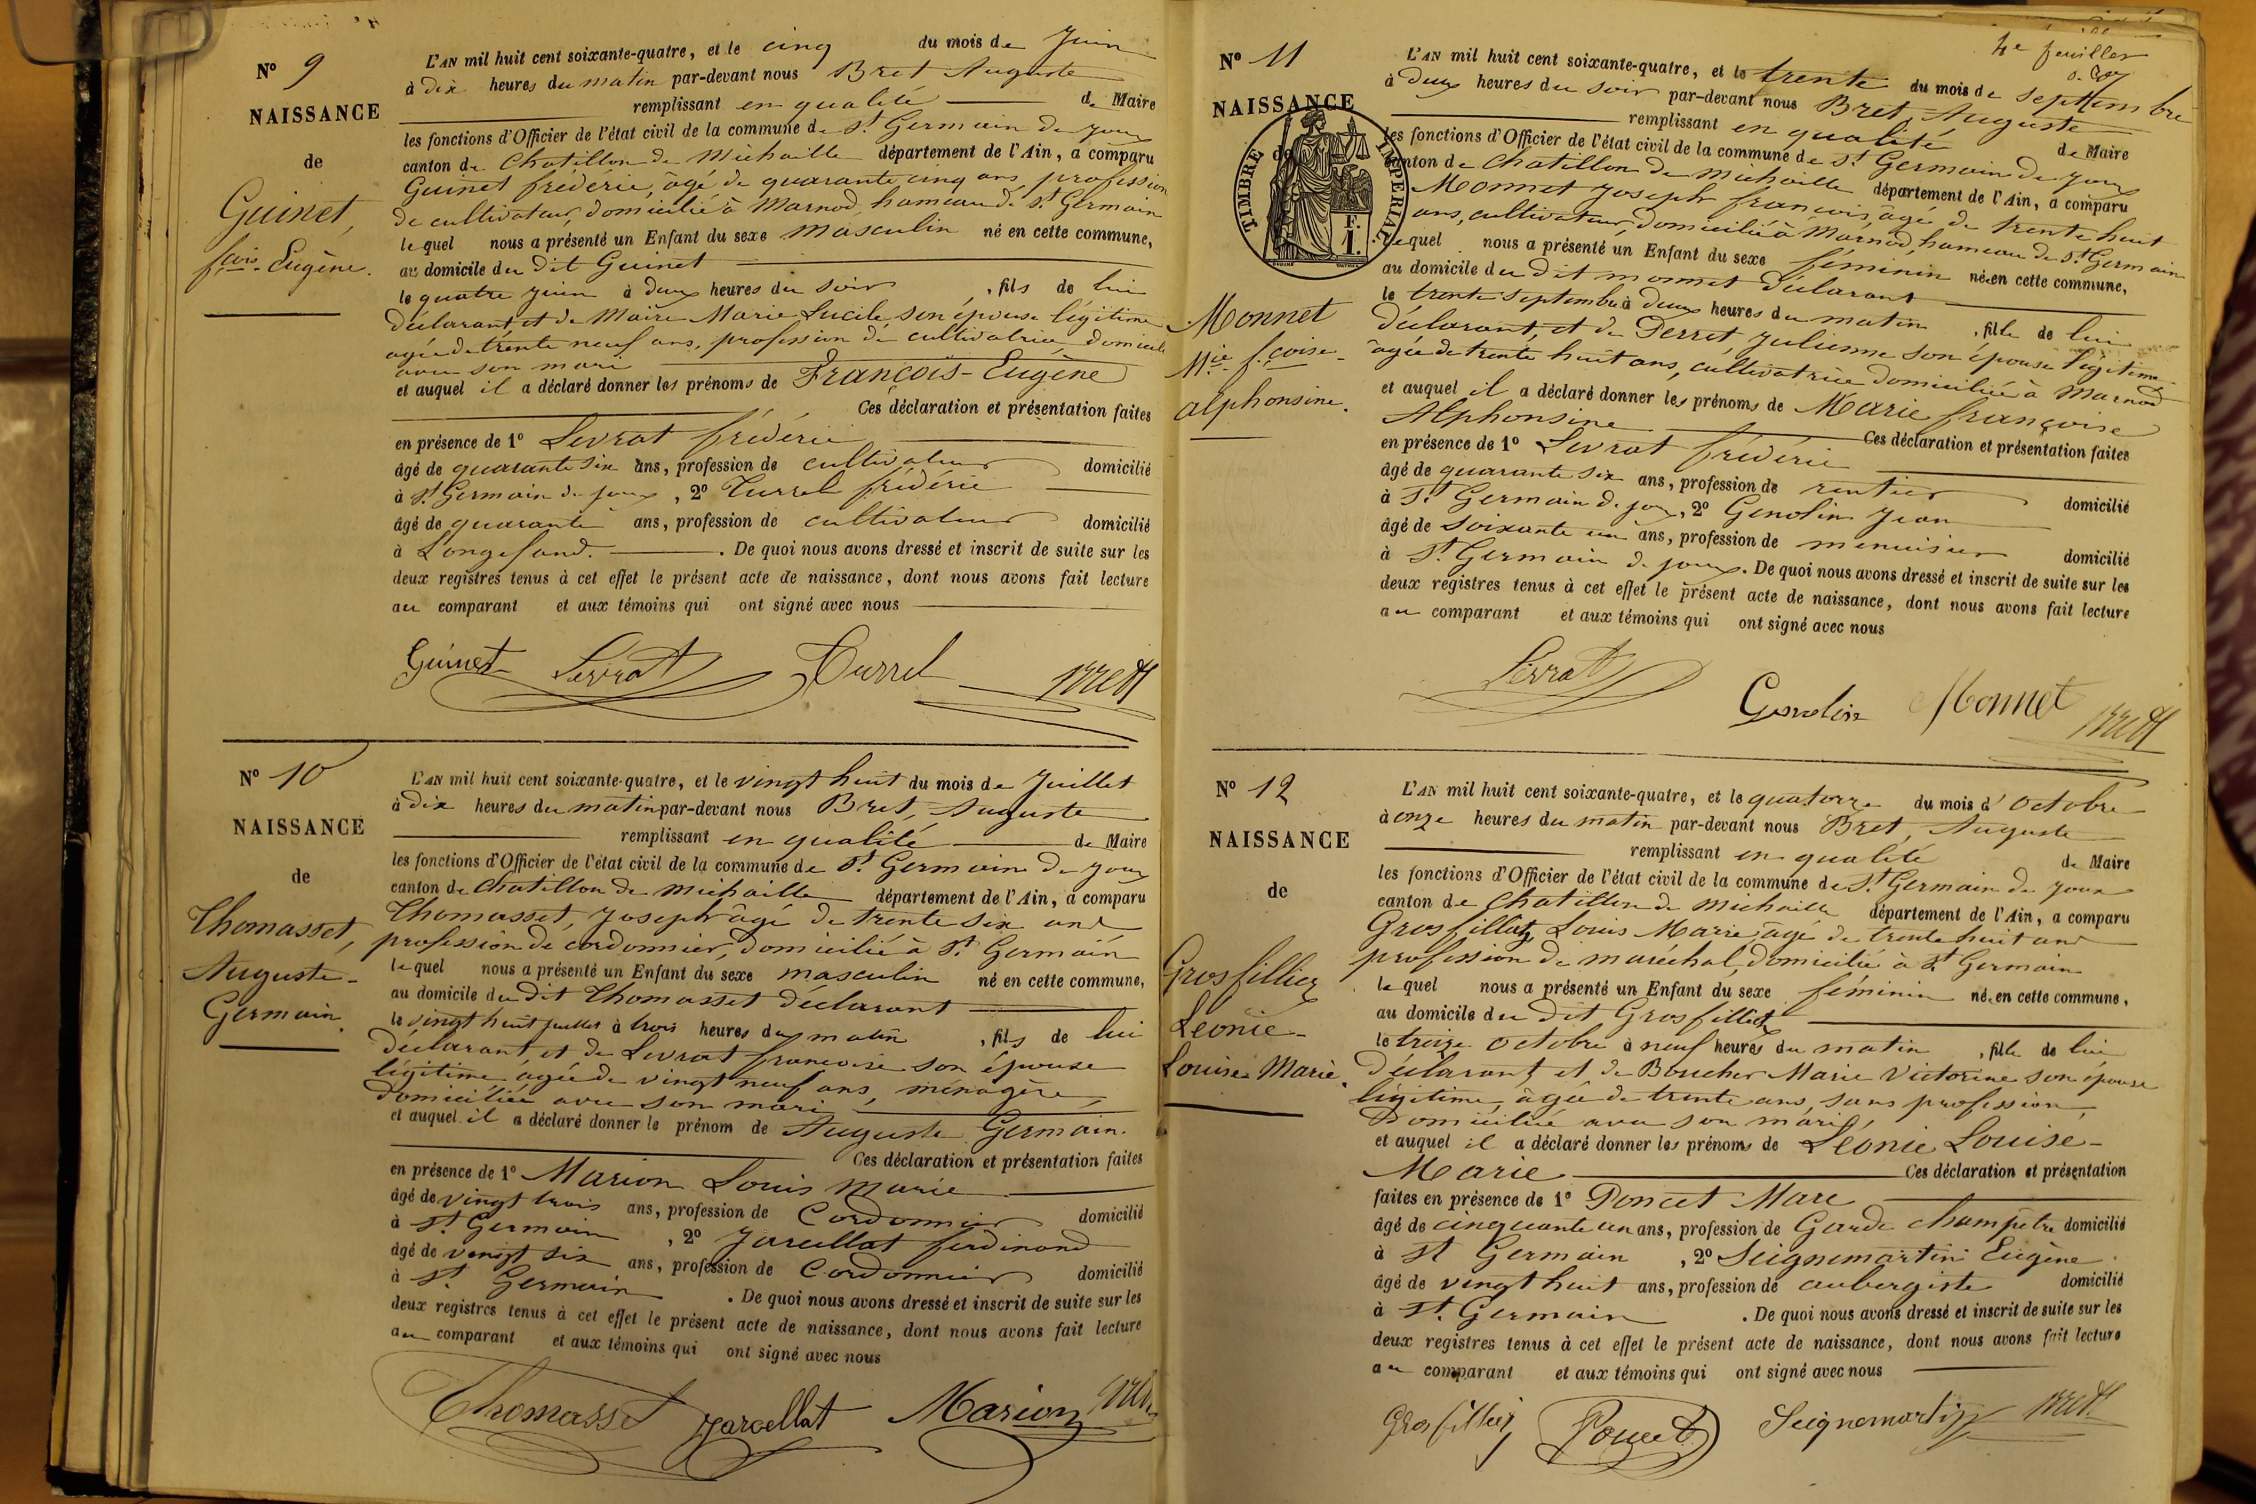 Nº 9
NAISSANCE
de
Guinet,
fçois Eugène.
L'AN mil huit cent soixante-quatre, et le cinq du mois de Juin
à dix heures du matin par-devant nous Bret Auguste
remplissant en qualité de Maire
les fonctions d'Officier de l'état civil de la commune de St Germain de Joux
canton de Chatillon de Michaille département de l'Ain, a comparu
Guinet frédéric, âgé de quarante cinq ans profession
de cultivateur, domicilié à Marnod, hameau de St Germain
lequel nous a présenté un Enfant du sexe masculin né en cette commune,
au domicile du dit Guinet
le quatre juin à deux heures du soir, fils de lui
déclarant et de Maire Marie Lucile son épouse légitime
agée de trente neuf ans, profession de cultivatrice, domicile
avec son mari
et auquel il a déclaré donner les prénoms de François-Eugène
Ces déclaration et présentation faites
en présence de 1º Levrat frédéric
âgé de quarante six ans, profession de cultivateur domicilié
à St Germain de joux, 2º Turrel frédéric
âgé de quarante ans, profession de cultivateur domicilié
à Longefand. De quoi nous avons dressé et inscrit de suite sur les
deux registres tenus à cet effet le présent acte de naissance, dont nous avons fait lecture
au comparant et aux témoins qui ont signé avec nous
Guinet Levrat Turrel Bret
Nº 10
NAISSANCE
de
Thomasset,
Auguste-
Germain.
L'AN mil huit cent soixante-quatre, et le vingt huit du mois de Juillet
à dix heures du matin par-devant nous Bret, Auguste
remplissant en qualité de Maire
les fonctions d'Officier de l'état civil de la commune de St Germain de Joux
canton de Chatillon de Michaille département de l'Ain, a comparu
Thomasset, Joseph âgé de trente six ans
profession de cordonnier, domicilié à St Germain
lequel nous a présenté un Enfant du sexe masculin né en cette commune,
au domicile du dit Thomasset déclarant
le vingt huit juillet à trois heures du matin, fils de lui
déclarant et de Levrat françoise son épouse
légitime agée de vingt neuf ans, ménagère,
domiciliée avec son mari
et auquel il a déclaré donner le prénom de Auguste Germain.
Ces déclaration et présentation faites
en présence de 1º Marion Louis Marie
âgé de vingt trois ans, profession de Cordonnier domicilié
à St Germain, 2º Jarcellat ferdinand
âgé de vengt six ans, profession de Cordonnier domicilié
à St Germain. De quoi nous avons dressé et inscrit de suite sur les
deux registres tenus à cet effet le présent acte de naissance, dont nous avons fait lecture
au comparant et aux témoins qui ont signé avec nous
Thomasset Jarcellat Marion Bret
4e feuillet
Nº 11
NAISSANCE
de
TIMBRE IMPERIAL
F.
1.
Monnet
Mie fçoise-
alphonsine.
L'AN mil huit cent soixante-quatre, et le trente du mois de septembre
à deux heures du soir par-devant nous Bret, Auguste
remplissant en qualité de Maire
les fonctions d'Officier de l'état civil de la commune de St Germain de Joux
canton de Chatillon de Michaille département de l'Ain, a comparu
Monnet Joseph françois, âgé de trente huit
ans, cultivateur, domicilié à Marnod, hameau de St Germain
lequel nous a présenté un Enfant du sexe féminin née en cette commune,
au domicile du dit monnet déclarant
le trente septembre à deux heures du matin, fille de lui
déclarant, et de Perret Julienne son épouse légitime
âgée de trente huit ans, cultivatrice domiciliée à Marnod
et auquel il a déclaré donner les prénoms de Marie françoise
Alphonsine Ces déclaration et présentation faites
en présence de 1º Levrat frédéric
âgé de quarante six ans, profession de rentier domicilié
à St Germain d. joux, 2º Genolin Jean
âgé de soixante un ans, profession de menuisier domicilié
à St Germain d. joux. De quoi nous avons dressé et inscrit de suite sur les
deux registres tenus à cet effet le présent acte de naissance, dont nous avons fait lecture
au comparant et aux témoins qui ont signé avec nous
Levrat Genolin Monnet Bret
Nº 12
NAISSANCE
de
Grosfilliex
Léonie-
Louise Marie.
L'AN mil huit cent soixante-quatre, et le quatorze du mois d'octobre
à onze heures du matin par-devant nous Bret, Auguste
remplissant en qualité de Maire
les fonctions d'Officier de l'état civil de la commune de St Germain de Joux
canton de Chatillon de Michaille département de l'Ain, a comparu
Grosfilliex Louis Marie agé de trente huit ans
profession de maréchal, domicilié à St Germain
lequel nous a présenté un Enfant du sexe féminin née en cette commune,
au domicile du dit Grosfilliex
le treize octobre à neuf heures du matin, fille de lui
déclarant et de Boucher Marie Victorine son épouse
légitime, âgée de trente ans, sans profession,
Domiciliée avec son mari,
et auquel il a déclaré donner les prénoms de Léonie Louise-
Marie Ces déclaration et présentation
faites en présence de 1º Poncet Marc
âgé de cinquante un ans, profession de Garde champêtre domicilié
à St Germain, 2º Seignemartin Eugène
âgé de vingt huit ans, profession de aubergiste domicilié
à St Germain. De quoi nous avons dressé et inscrit de suite sur les
deux registres tenus à cet effet le présent acte de naissance, dont nous avons fait lecture
au comparant et aux témoins qui ont signé avec nous
Grosfilleix Poncet Seignemartin Bret